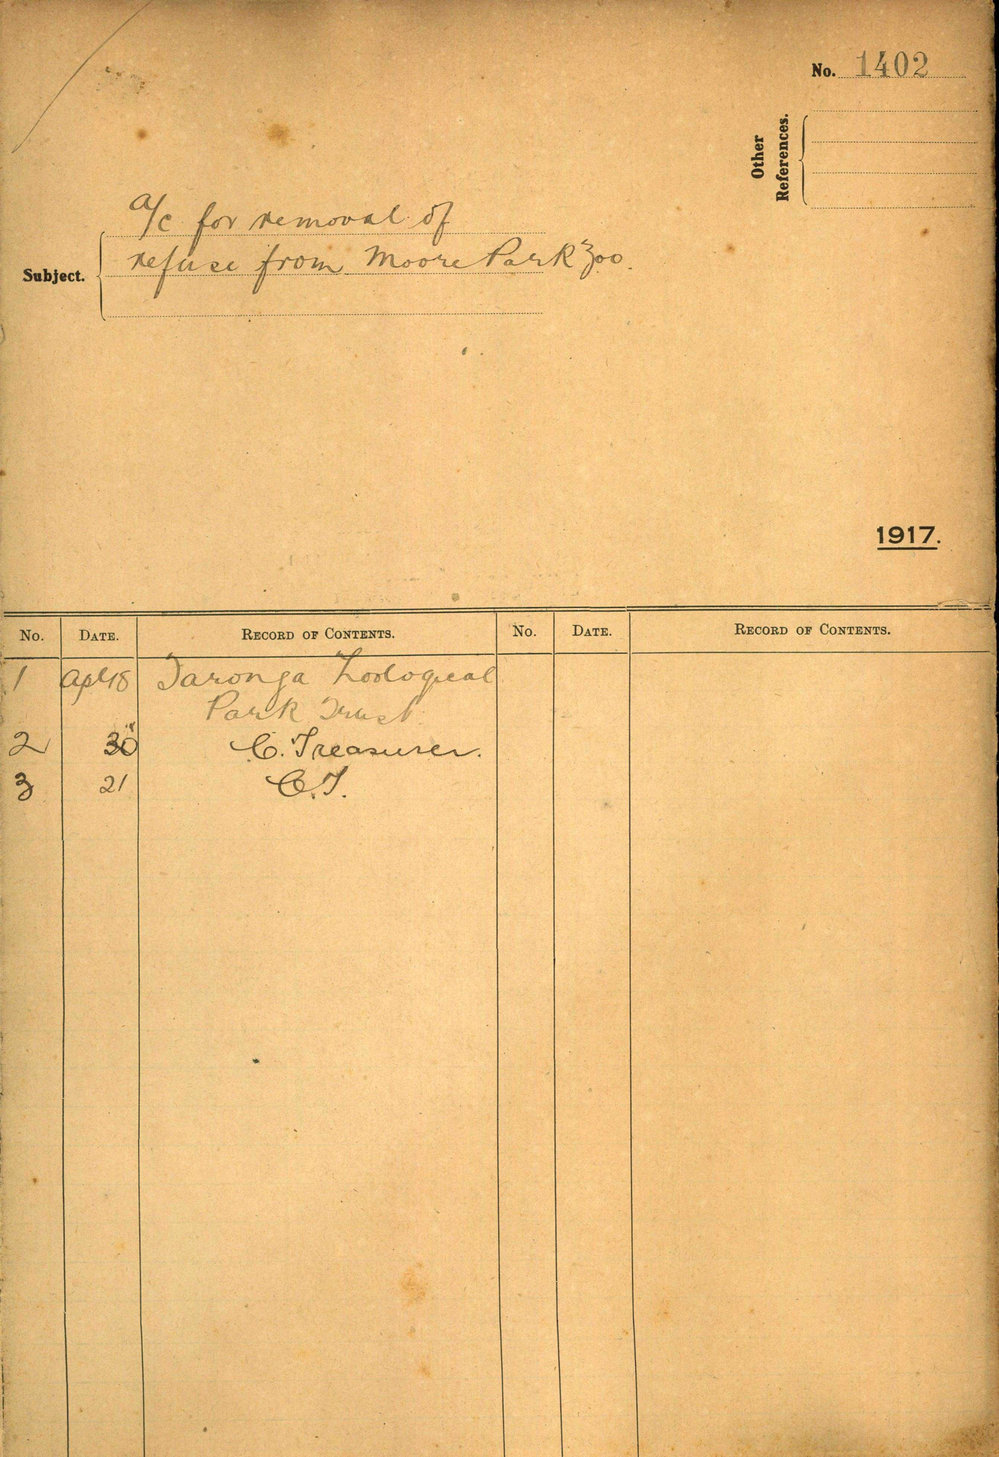 No. 1402
Other
References.
a/c for removal of
Subject. refuse from Moore Park Zoo.
1917.
No. DATE. RECORD OF CONTENTS. No. DATE. RECORD OF CONTENTS.
1 Apl 18 Taronga Zoological
Park Trust
2 30 C. Treasurer.
3 21 C.T.